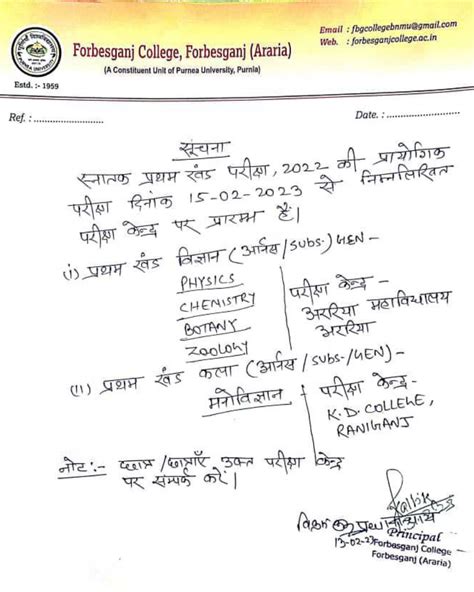 Email : fbgcollegebnmu@gmail.com
Web. : forbesganjcollege.ac.in
Forbesganj College, Forbesganj (Araria)
(A Constituent Unit of Purnea University, Purnia)
Estd. :- 1959
Ref. : ........................
Date. : ........................
सूचना
स्नातक प्रथम खंड परीक्षा, 2022 की प्रायोगिक
परीक्षा दिनांक 15-02-2023 से निम्नलिखित
परीक्षा केन्द्र पर प्रारम्भ है।
(i) प्रथम खंड विज्ञान (आर्नस/SUBS.)GEN –
PHYSICS
CHEMISTRY
BOTANY
ZOOLOGY
परीक्षा केन्द्र –
अररिया महाविद्यालय
अररिया
(II) प्रथम खंड कला (आर्नस/SUBS-/GEN) –
मनोविज्ञान – परीक्षा केन्द्र –
K.D. COLLEGE,
RANIGANJ
नोट :- छात्र/छात्राएँ उक्त परीक्षा केन्द्र
पर सम्पर्क करें।
Principal
13-02-23 Forbesganj College
Forbesganj (Araria)